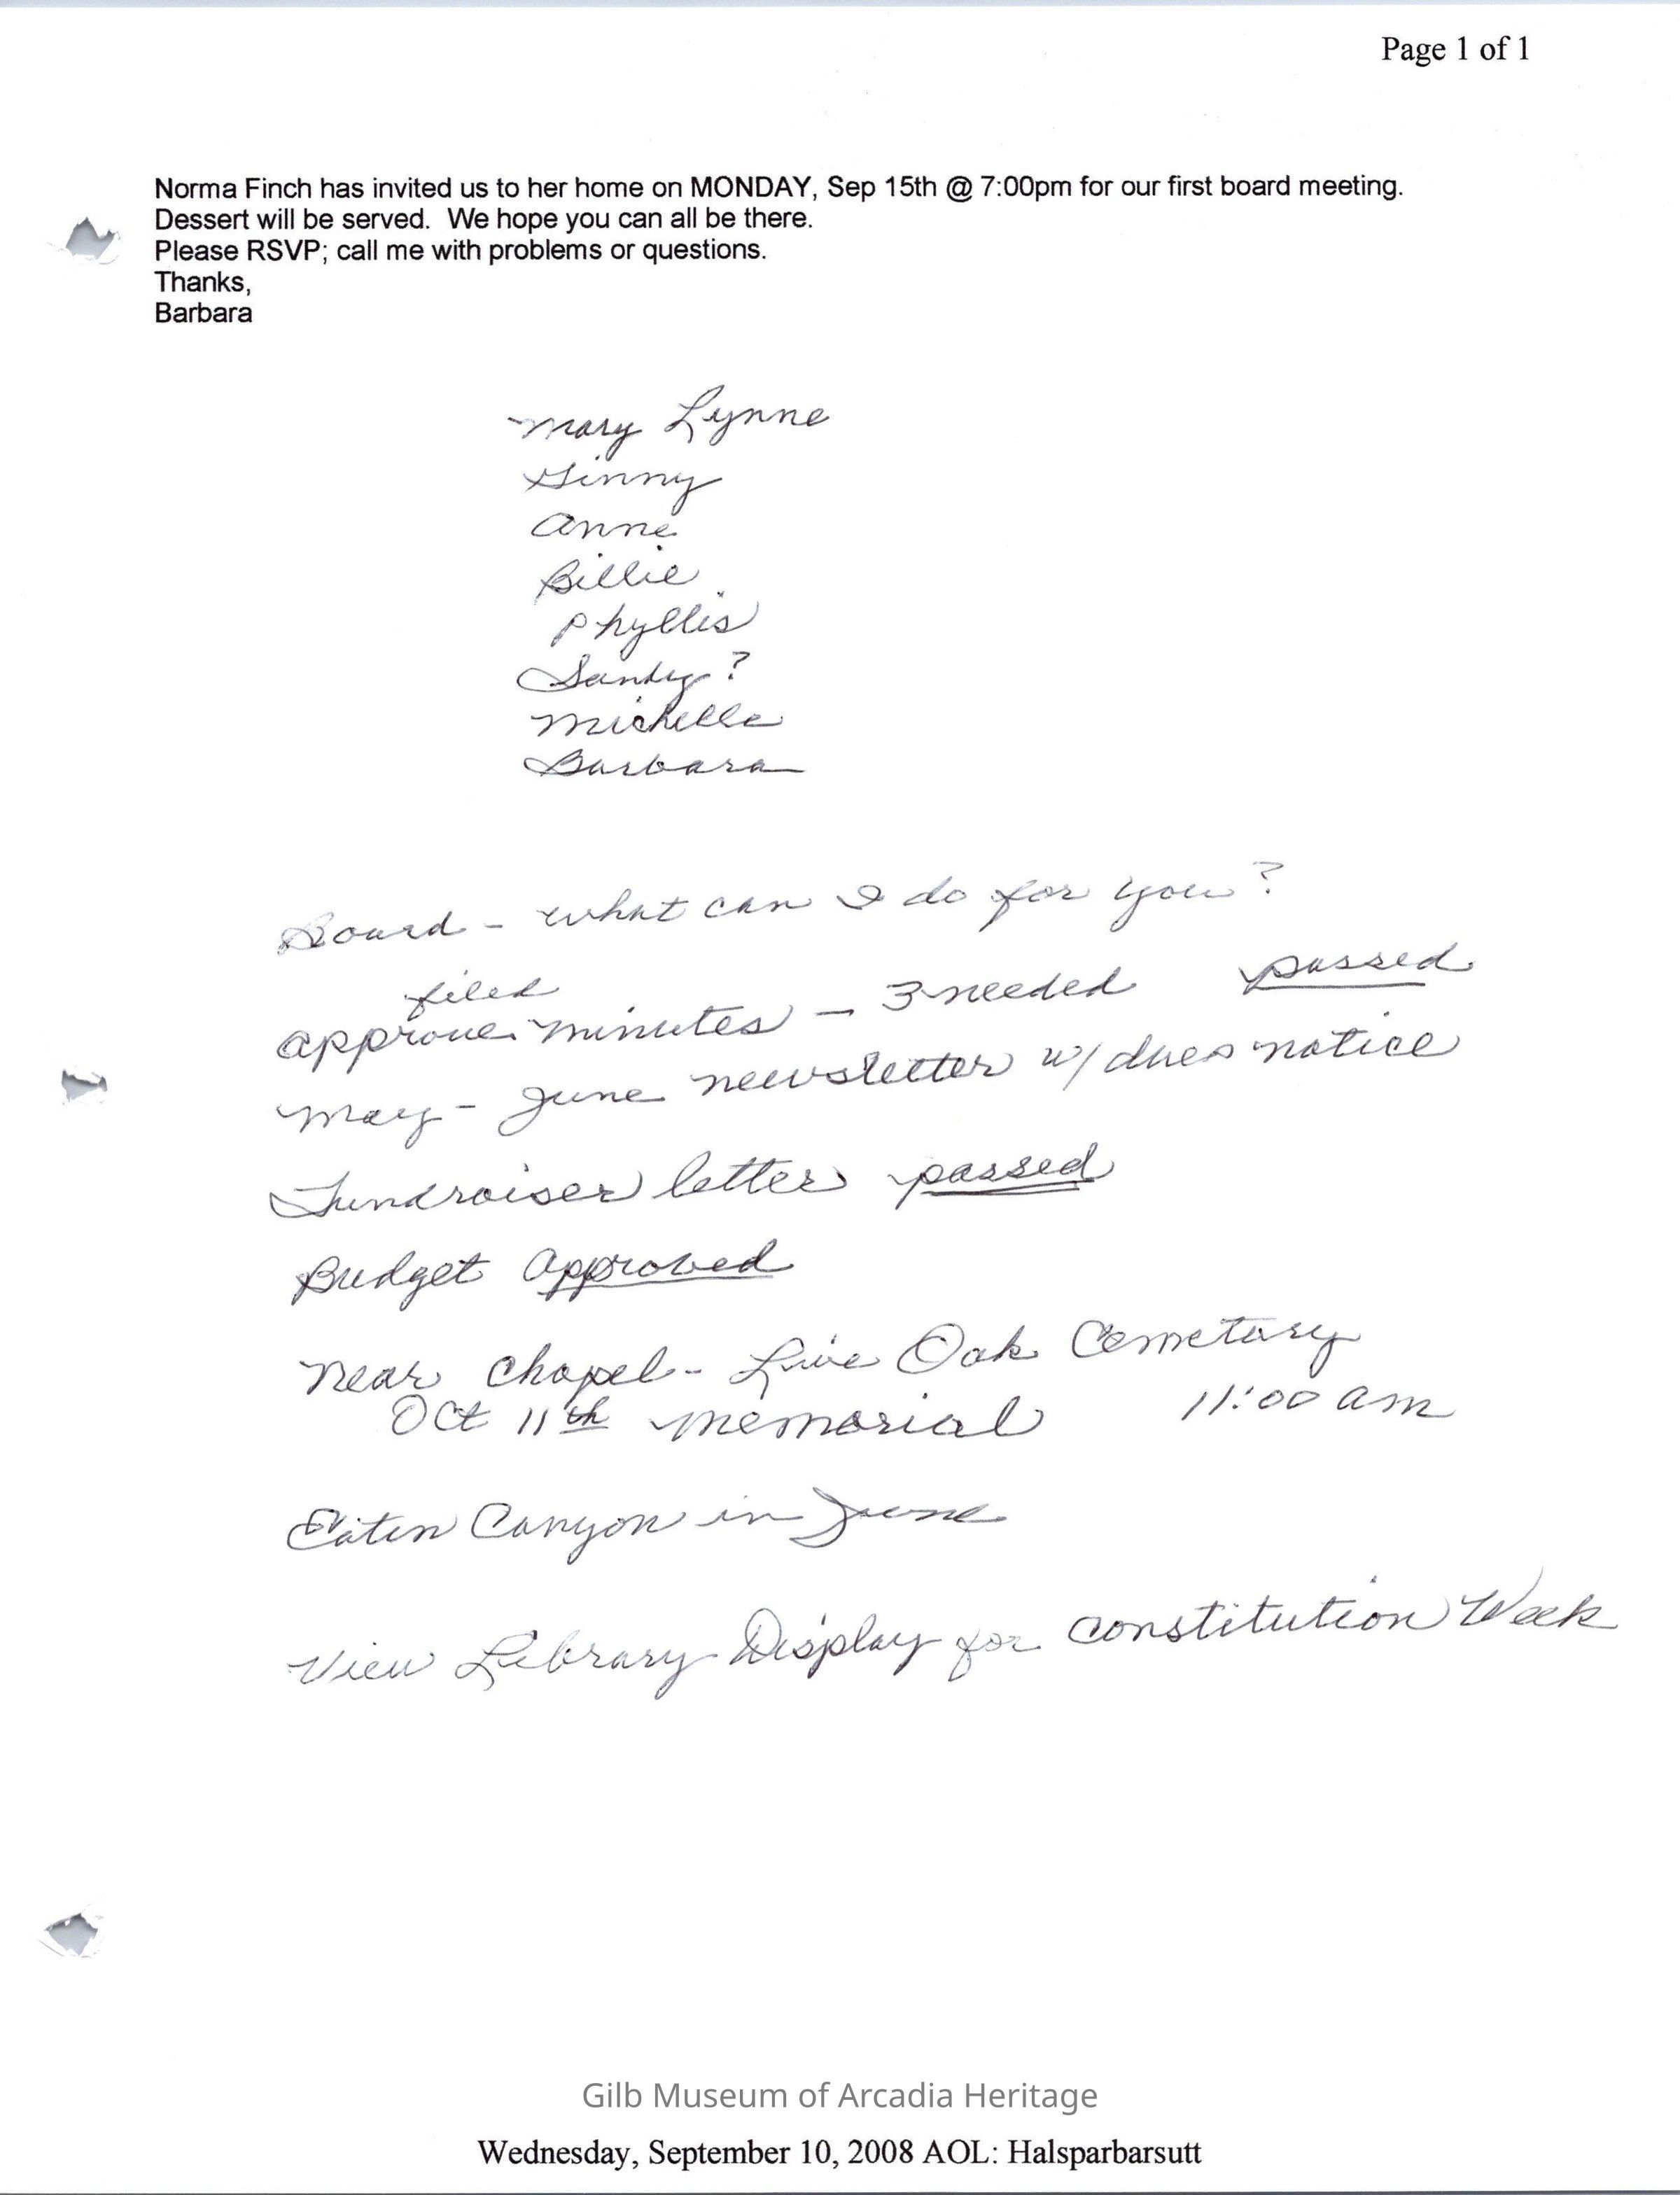 Page 1 of 1
Norma Finch has invited us to her home on MONDAY, Sep 15th @ 7:00pm for our first board meeting.
Dessert will be served.  We hope you can all be there.
Please RSVP; call me with problems or questions.
Thanks,
Barbara
Mary Lynne
Ginny
Anne
Billie
Phyllis
Sandy ?
Michelle
Barbara
Board - what can I do for you?
filed
approve minutes - 3 needed passed
May - June newsletter w/ dues notice
Fundraiser letter passed
Budget Approved
Near Chapel - Live Oak Cemetary
Oct 11th Memorial 11:00 am
Eaton Canyon in June
View Library Display for Constitution Week
Gilb Museum of Arcadia Heritage
Wednesday, September 10, 2008 AOL: Halsparbarsutt